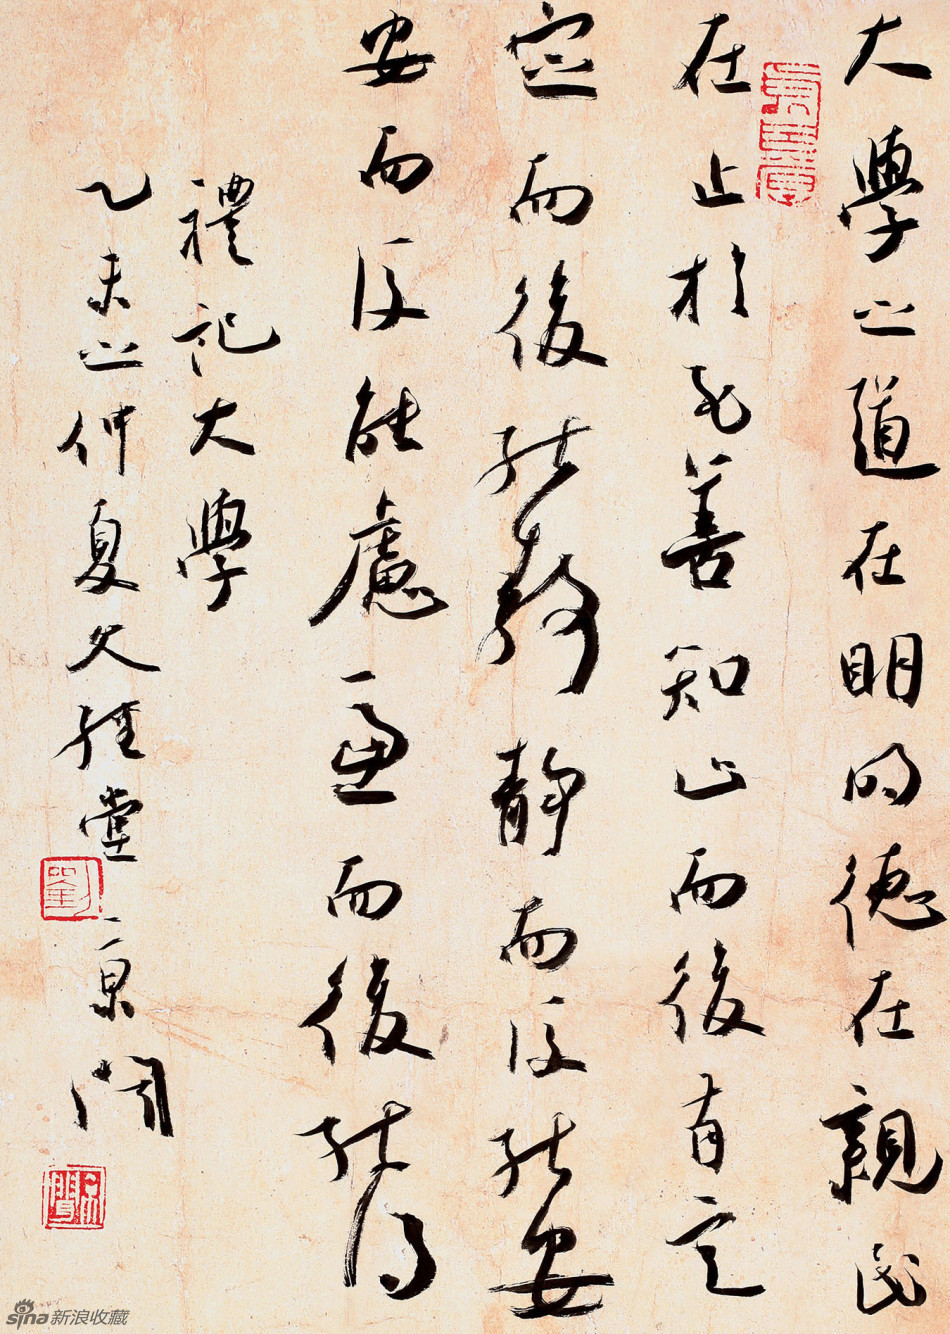 大學之道在明明德在親民
在止於至善知止而後有定
定而後能靜靜而后能安
安而后能慮慮而後能得
禮記大學
乙未之仲夏文經堂京聞
劉
sina新浪收藏